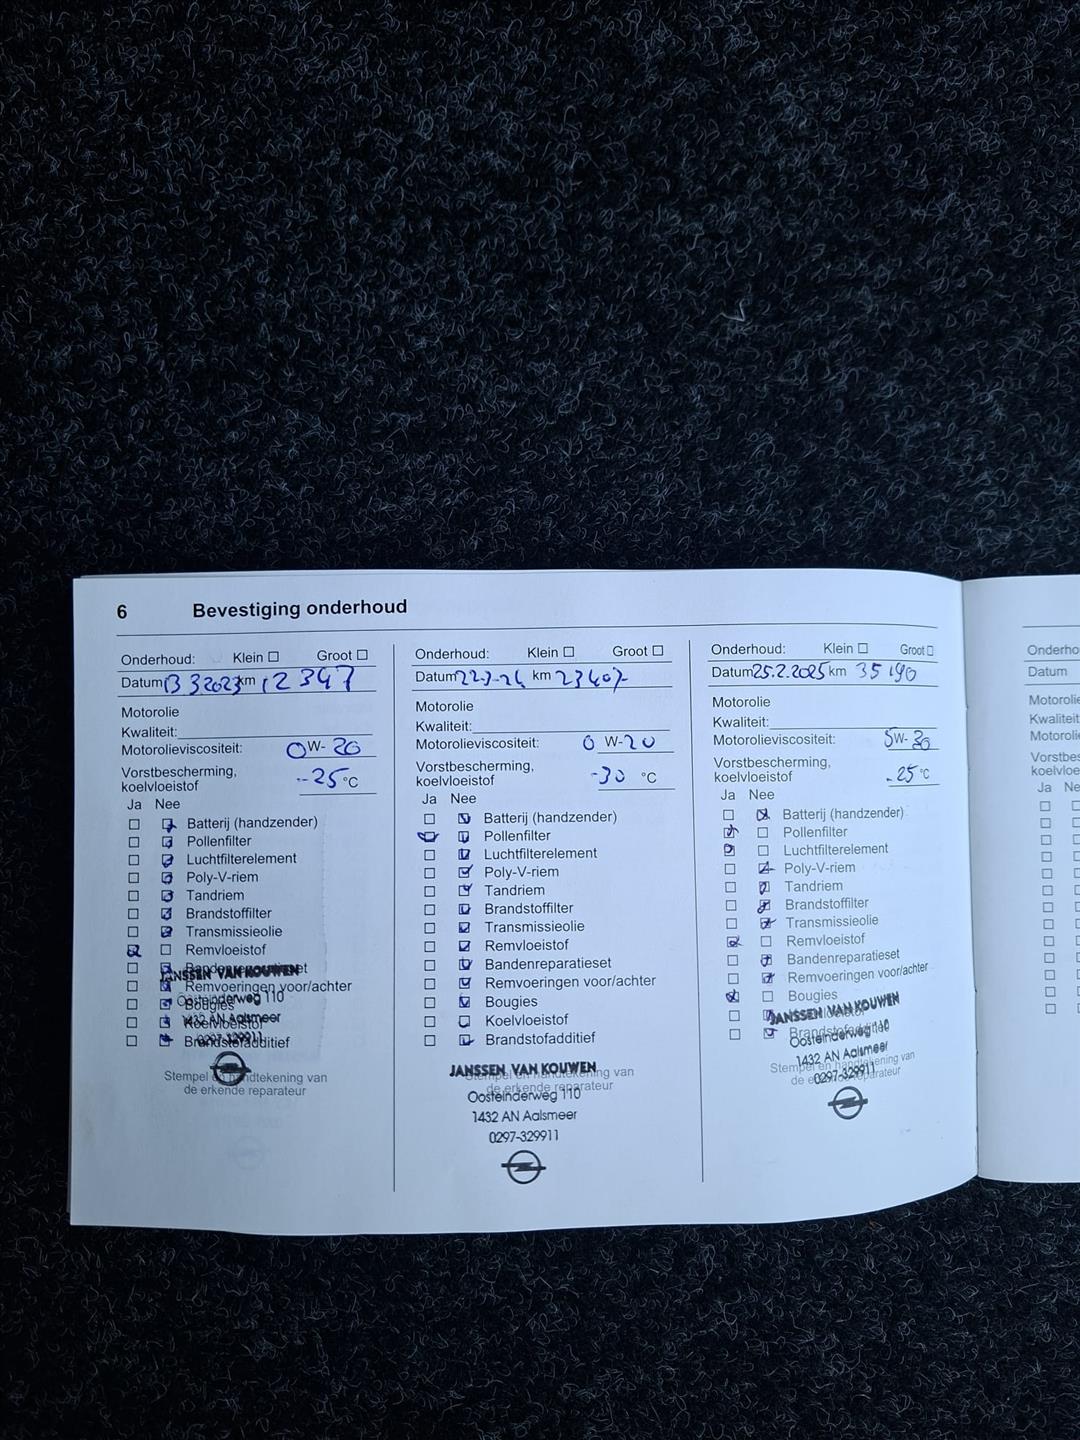 6 Bevestiging onderhoud
Onderhoud: Klein Groot
Datum 13 3 2023 km 12 347
Motorolie
Kwaliteit:
Motorolieviscositeit: 0 W- 20
Vorstbescherming,
koelvloeistof -25 °C
Ja Nee
Batterij (handzender)
Pollenfilter
Luchtfilterelement
Poly-V-riem
Tandriem
Brandstoffilter
Transmissieolie
Remvloeistof
Bandenreparatieset
JANSSEN VAN KOUWEN
Remvoeringen voor/achter
Oosteinderweg 110
Bougies
1432 AN Aalsmeer
Koelvloeistof
0297-329911
Brandstofadditief
Stempel en handtekening van
de erkende reparateur
Onderhoud: Klein Groot
Datum km
Motorolie
Kwaliteit:
Motorolieviscositeit: 0 W-20
Vorstbescherming,
koelvloeistof -30 °C
Ja Nee
Batterij (handzender)
Pollenfilter
Luchtfilterelement
Poly-V-riem
Tandriem
Brandstoffilter
Transmissieolie
Remvloeistof
Bandenreparatieset
Remvoeringen voor/achter
Bougies
Koelvloeistof
Brandstofadditief
JANSSEN VAN KOUWEN
Stempel en handtekening van
de erkende reparateur
Oosteinderweg 110
1432 AN Aalsmeer
0297-329911
Onderhoud: Klein Groot
Datum 25.2.2025 km 35 190
Motorolie
Kwaliteit:
Motorolieviscositeit: 5W- 30
Vorstbescherming,
koelvloeistof -25 °C
Ja Nee
Batterij (handzender)
Pollenfilter
Luchtfilterelement
Poly-V-riem
Tandriem
Brandstoffilter
Transmissieolie
Remvloeistof
Bandenreparatieset
Remvoeringen voor/achter
Bougies
JANSSEN VAN KOUWEN
Koelvloeistof
Oosteinderweg 110
Brandstofadditief
1432 AN Aalsmeer
Stempel en handtekening van
0297-329911
de erkende reparateur
Onderho
Datum
Motorolie
Kwaliteit
Motorolie
Vorstbes
koelvloe
Ja Ne